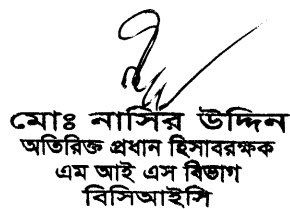 মোঃ নাসির উদ্দিন
অতিরিক্ত প্রধান হিসাবরক্ষক
এম আই এস বিভাগ
বিসিআইসি